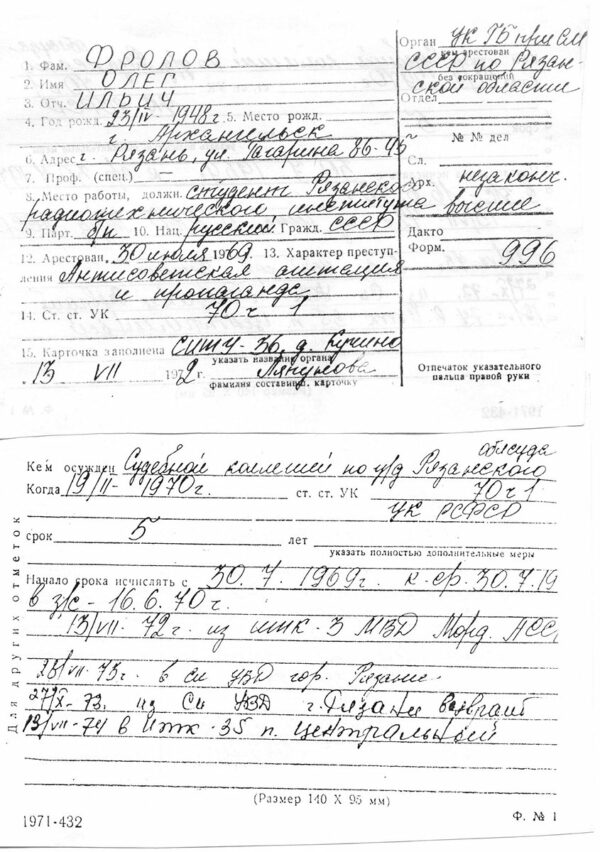 1. Фам. ФРОЛОВ
2. Имя ОЛЕГ
3. Отч. ИЛЬИЧ
4. Год рожд. 23/IV-1948г. 5. Место рожд.
г. Архангельск
6. Адрес г. Рязань, ул. Гагарина 86-45
7. Проф. (спец.) —
8. Место работы, должн. студент Рязанского
радиотехнического института
9. Парт. б/п 10. Нац. русский Гражд. СССР
12. Арестован 30 июля 1969. 13. Характер преступ-
ления Антисоветская агитация
и пропаганда
14. Ст. ст. УК 70 ч 1
15. Карточка заполнена СИТУ-36, д. Кучино
указать название органа
13 VII 1972 г.
фамилия составивш. карточку
Орган УКГБ при СМ
кем арестован
СССР по Рязан-
без сокращений
ской области
Отдел
№ № дел
Сл.
Арх. незаконч.
высшее
Дакто
Форм. 996
Отпечаток указательного
пальца правой руки
1971-432
облсуда
Кем осужден Судебной коллегией по у/д Рязанского
Когда 19/II-1970г. ст. ст. УК 70 ч 1
УК РСФСР
срок 5 лет
указать полностью дополнительные меры
Начало срока исчислять с 30.7.1969г. к-ср. 30.7.19
в з/с - 16.6.70г.
13/VII-72г. из ИТК-3 МВД Морд. АССР
Для других отметок
23/VII-73г. в си УВД гор. Рязани
27/IX-73. из Си УВД г. Рязани возврат
13/VII-74 в ИТК-35 п. Центральный
(Размер 140 X 95 мм)
1971-432
Ф. № 1